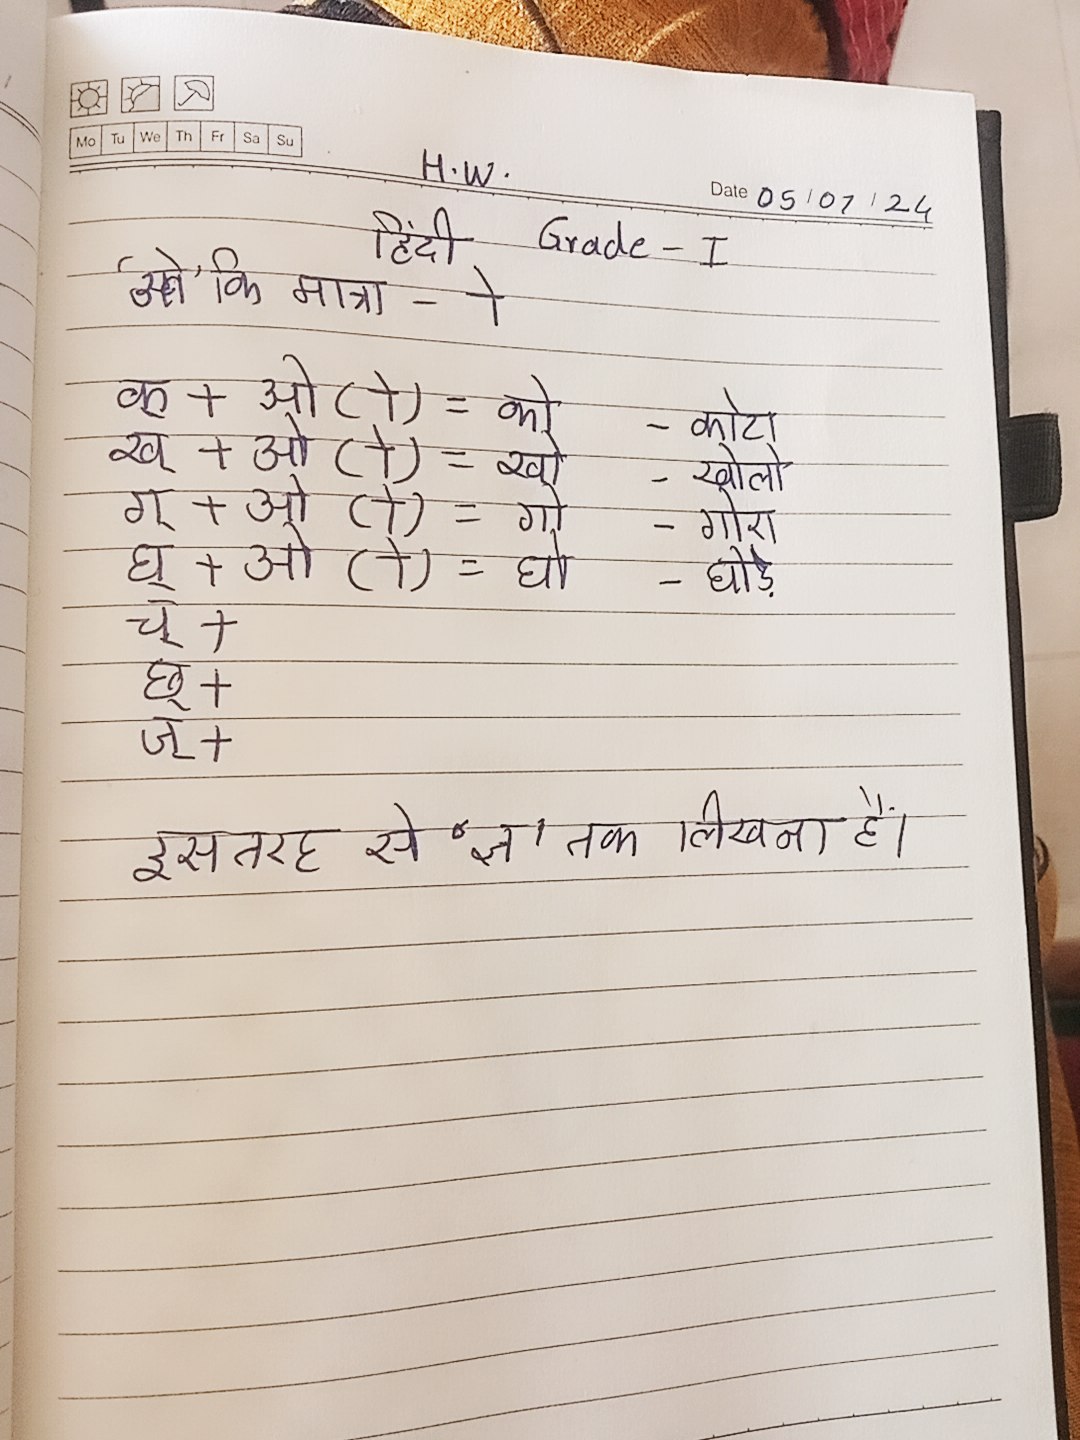 Mo Tu We Th Fr Sa Su
H.W.
Date 05/07/24
हिंदी Grade - I
'ओ' कि मात्रा - ो
क् + ओ (ो) = को - कोटा
ख् + ओ (ो) = खो - खोलो
ग् + ओ (ो) = गो - गोरा
घ् + ओ (ो) = घो - घोड़े
च् +
छ् +
ज् +
इस तरह से 'ज्ञ' तक लिखना है।